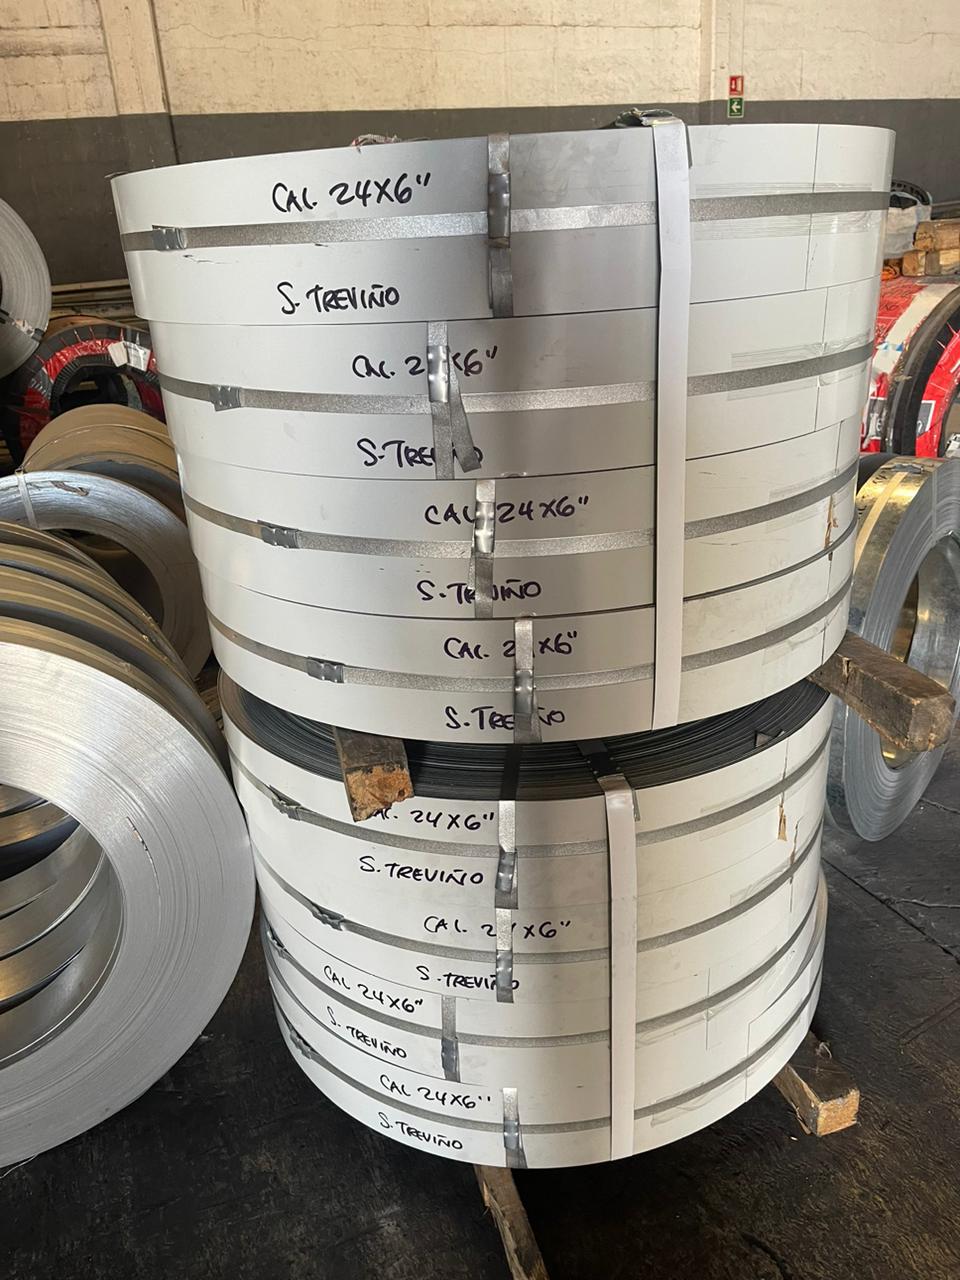 CAL. 24X6"
S. TREVIÑO
CAL. 2 X6"
S. TRE
CAL 24X6"
S. TR IÑO
CAL. 2 X6"
S. TRE ÑO
24X6"
S. TREVIÑO
CAL. 2 X6"
S. TREVIÑO
CAL 24X6"
S. TREVIÑO
CAL 24X6"
S. TREVIÑO